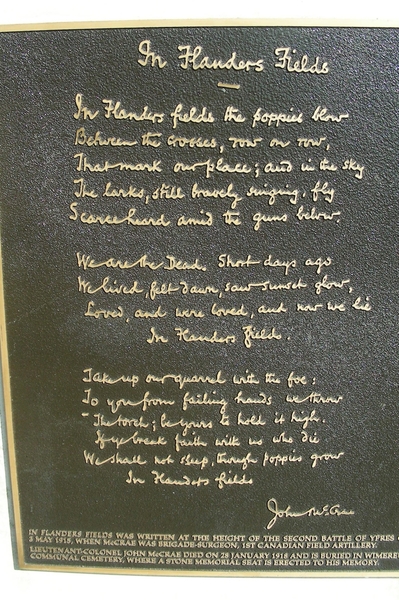 In Flanders Fields
In Flanders fields the poppies blow
Between the crosses, row on row,
That mark our place; and in the sky
The larks, still bravely singing, fly
Scarce heard amid the guns below.
We are the Dead. Short days ago
We lived, felt dawn, saw sunset glow,
Loved, and were loved, and now we lie
In Flanders fields.
Take up our quarrel with the foe:
To you from failing hands we throw
The torch; be yours to hold it high.
If ye break faith with us who die
We shall not sleep, though poppies grow
In Flanders fields
John McCrae
IN FLANDERS FIELDS WAS WRITTEN AT THE HEIGHT OF THE SECOND BATTLE OF YPRES
3 MAY 1915, WHEN McCRAE WAS BRIGADE-SURGEON, 1ST CANADIAN FIELD ARTILLERY.
LIEUTENANT-COLONEL JOHN McCRAE DIED ON 28 JANUARY 1918 AND IS BURIED IN
COMMUNAL CEMETERY, WHERE A STONE MEMORIAL SEAT IS ERECTED TO HIS MEMORY.